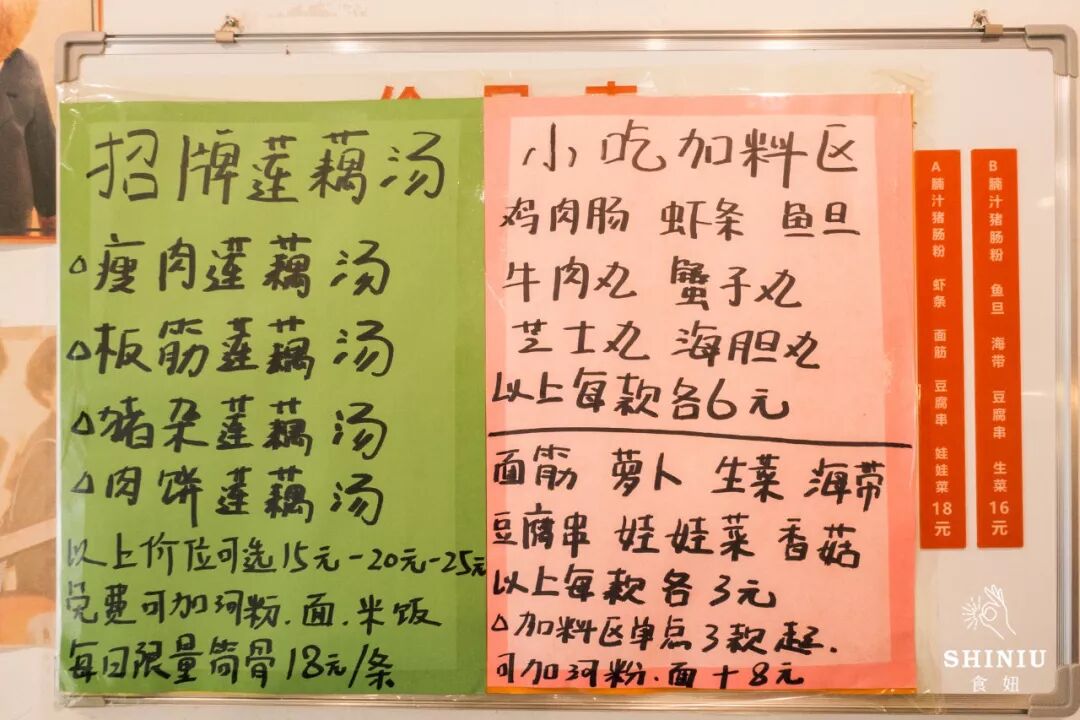 招牌莲藕汤
△瘦肉莲藕汤
△板筋莲藕汤
△猪杂莲藕汤
△肉饼莲藕汤
以上价位可选15元-20元-25元
免费可加河粉.面.米饭
每日限量筒骨18元/条
小吃加料区
鸡肉肠 虾条 鱼旦
牛肉丸 蟹子丸
芝士丸 海胆丸
以上每款各6元
面筋 萝卜 生菜 海带
豆腐串 娃娃菜 香菇
以上每款各3元
△加料区单点3款起.
可加河粉.面+8元
A腩汁猪肠粉 虾条 面筋 豆腐串 娃娃菜18元
B腩汁猪肠粉 鱼旦 海带 豆腐串 生菜16元
SHINIU
食妞